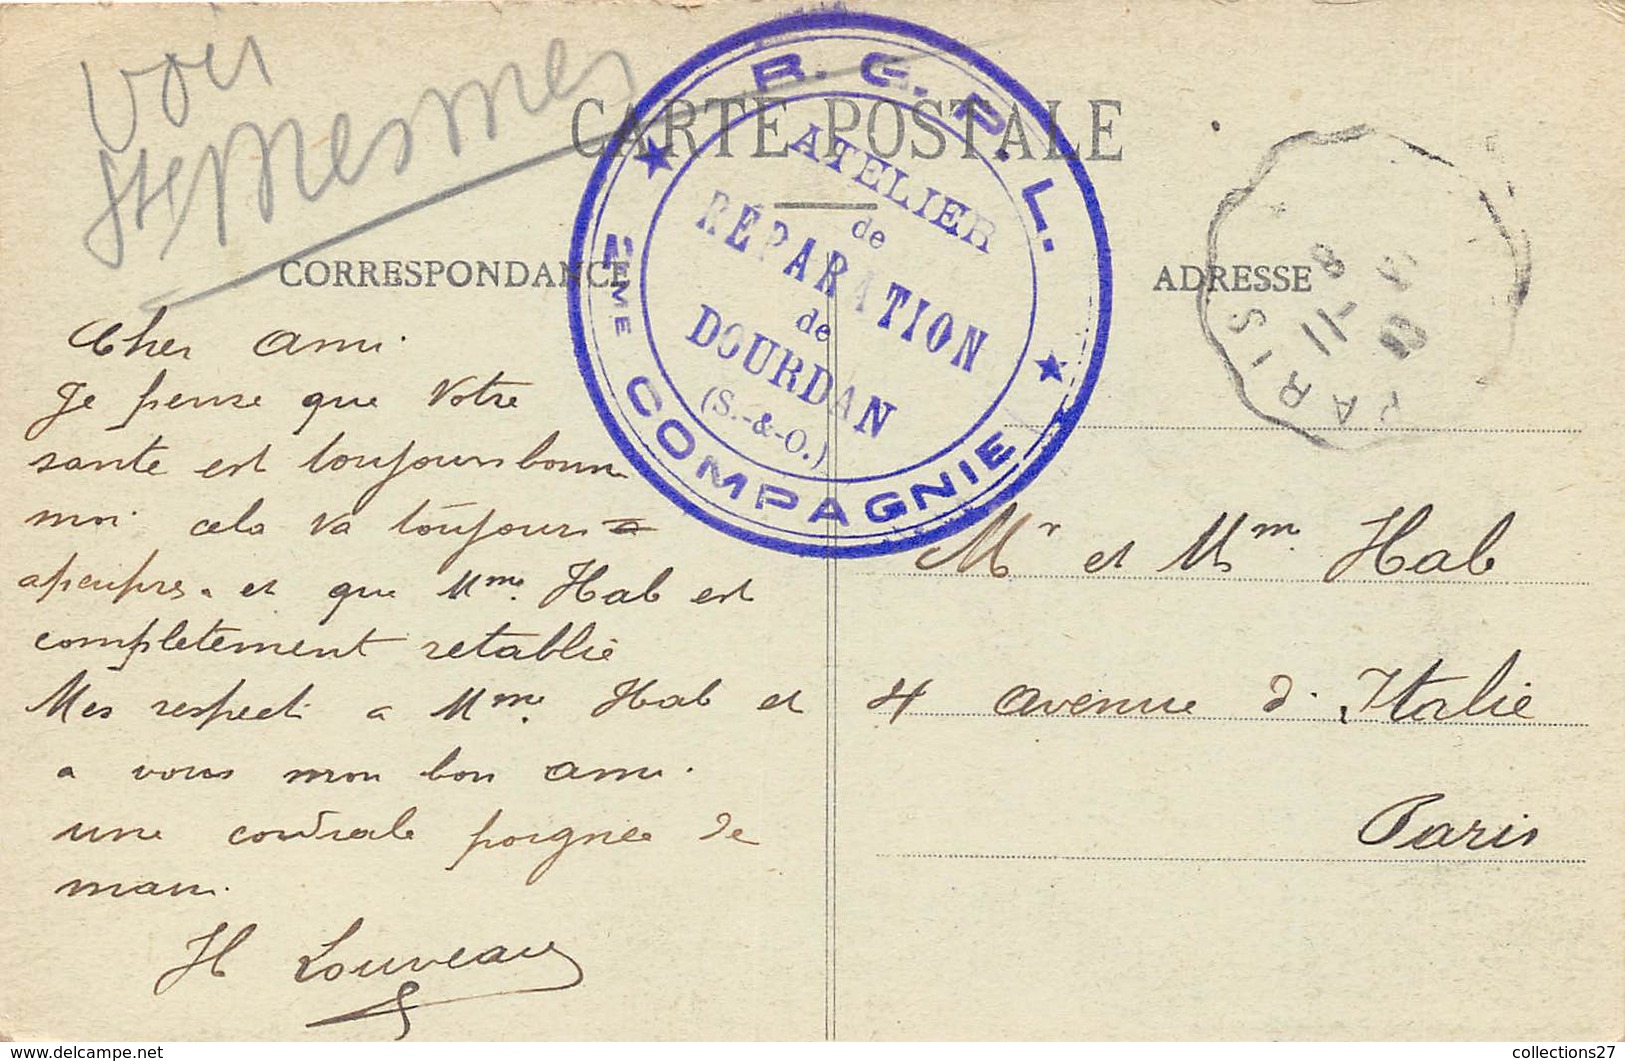 voir
Ste Mesmes
CARTE POSTALE
R. G. P. L.
ATELIER
de
RÉPARATION
de
DOURDAN
(S.-&-O.)
COMPAGNIE
CORRESPONDANCE
ADRESSE
PARIS
11-8
Cher ami.
Je pense que votre
santé est toujours bonne
moi cela va toujours =
apeupres. et que Mme. Hab est
completement retablie
Mes respect a Mme. Hab et
a vous mon bon ami.
une cordiale poignée de
main.
H Louveau
Mr et Mme. Hab
4 avenue d. Italie
Paris
collections27